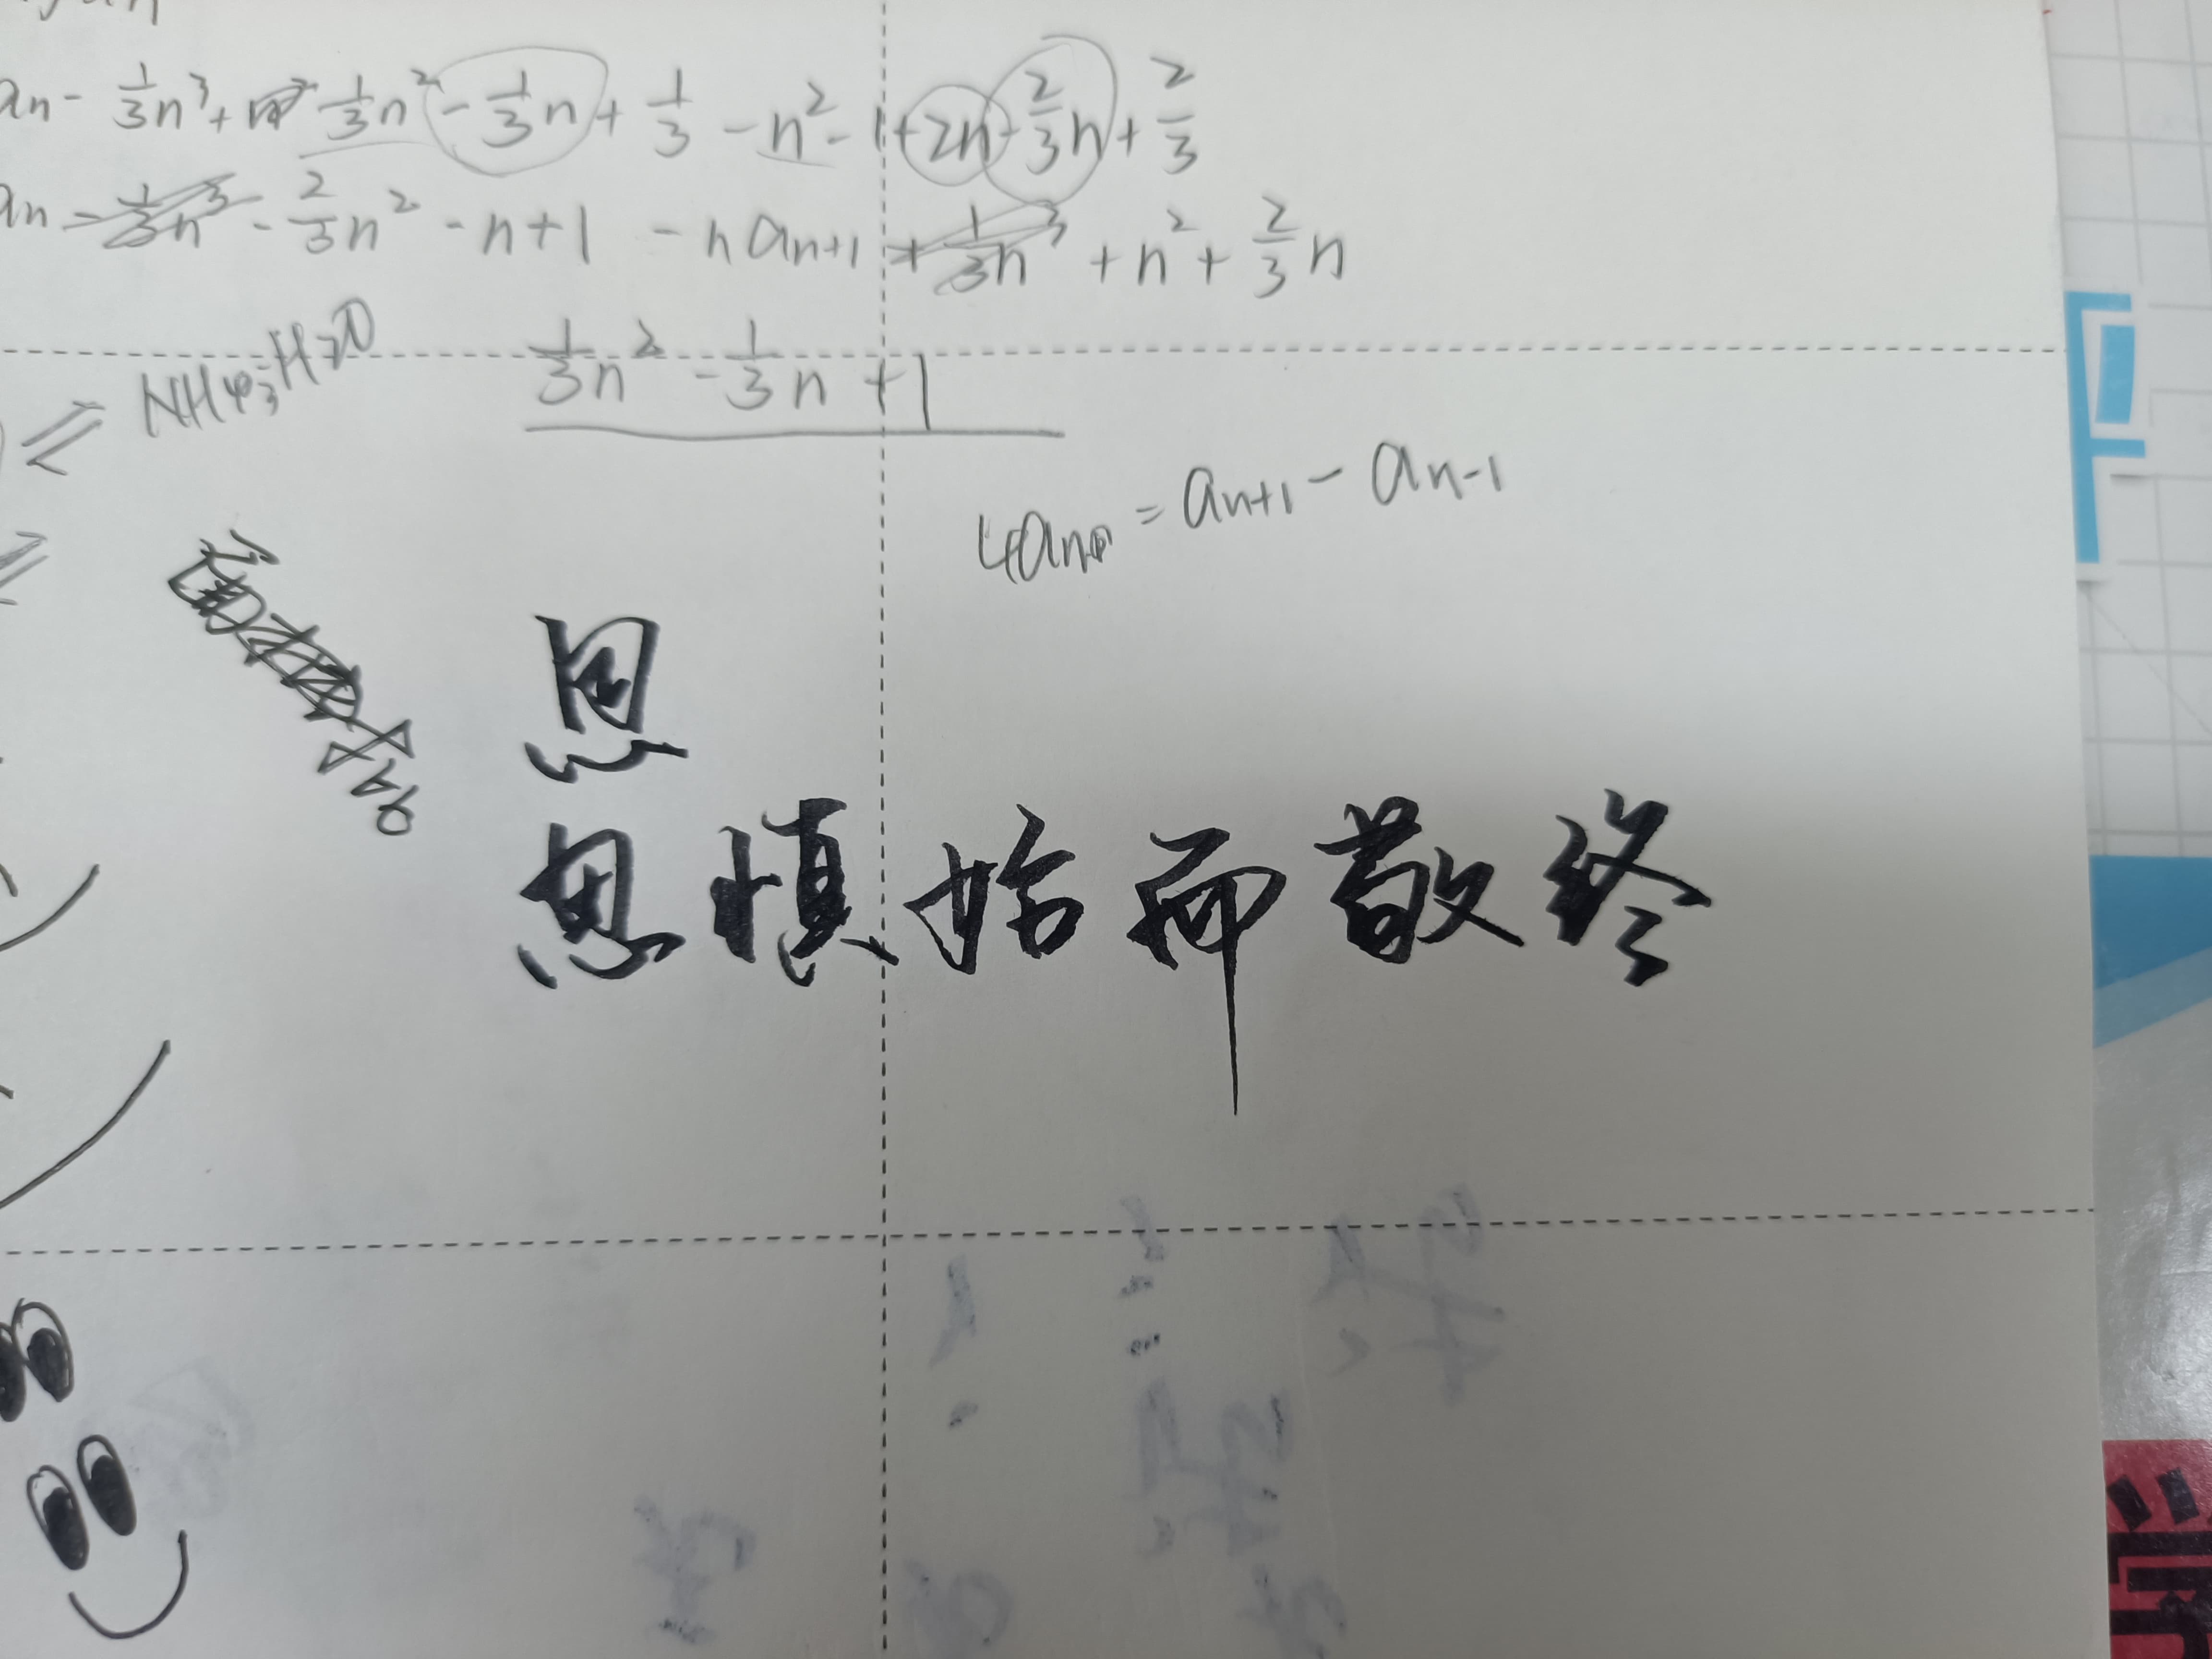 an - 1/3 n³ + n² - 1/3 n² - 1/3 n + 1/3 - n² - 1 + 2n - 2/3 n + 2/3
an - 1/3 n³ - 2/3 n² - n + 1 - n an+1 + 1/3 n³ + n² + 2/3 n
1/3 n² - 1/3 n + 1
= an+1 - an-1
恩
思慎始而敬终